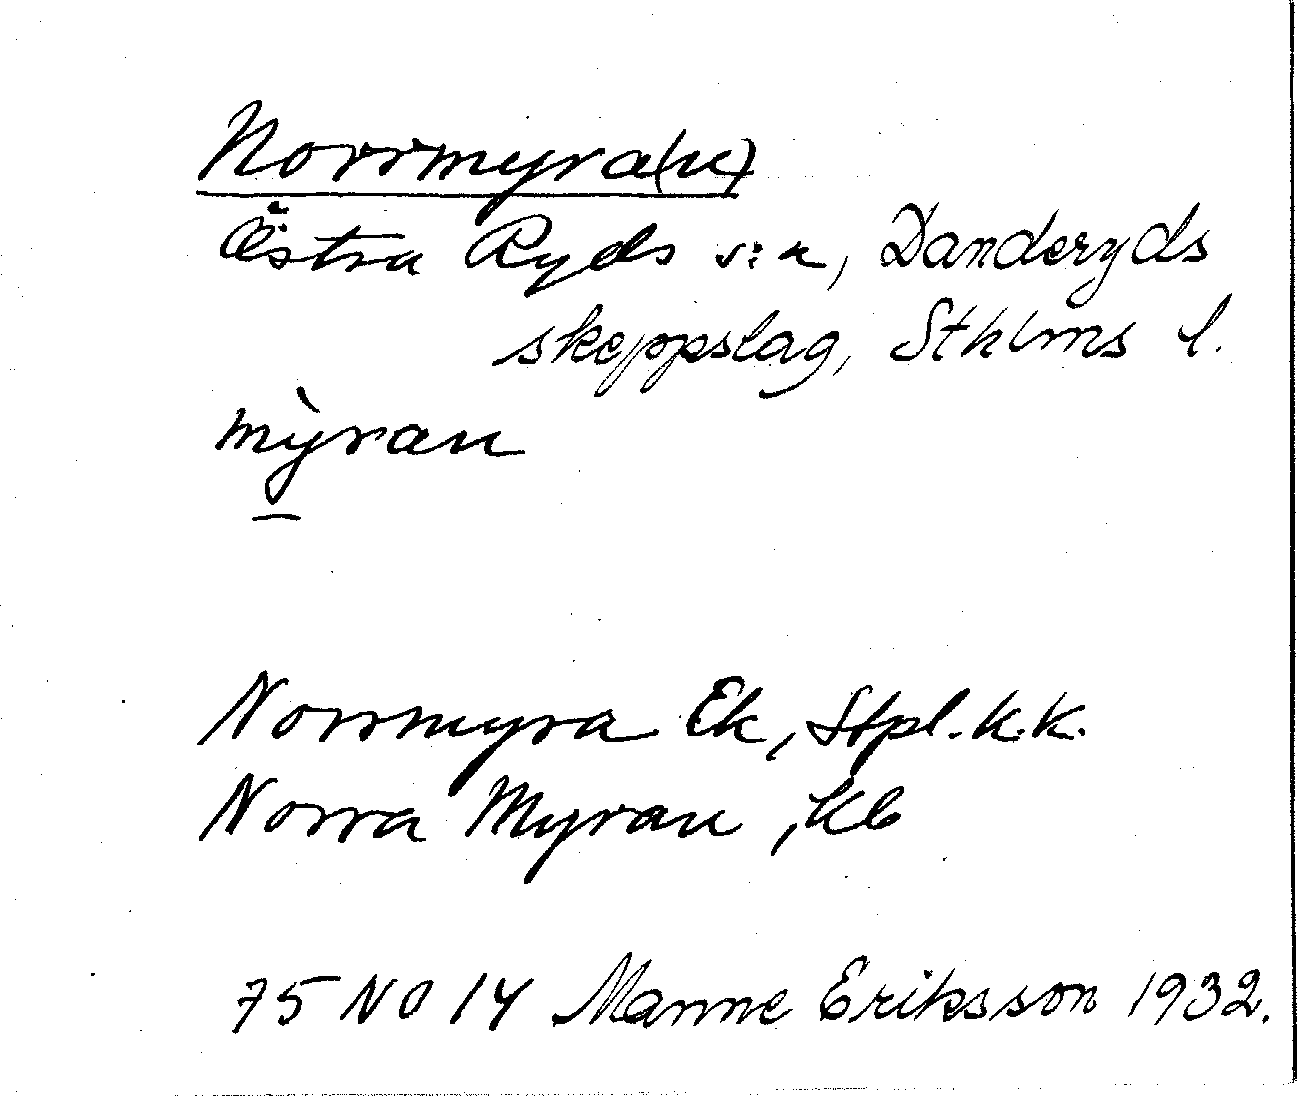 Norrmyra(n)
Östra Ryds s:n, Danderyds
skeppslag, Sthlms l.
mỳran
Norrmyra Ek, Stpl. k.k.
Norra Myran, Kb
75 NO 14 Manne Eriksson 1932.